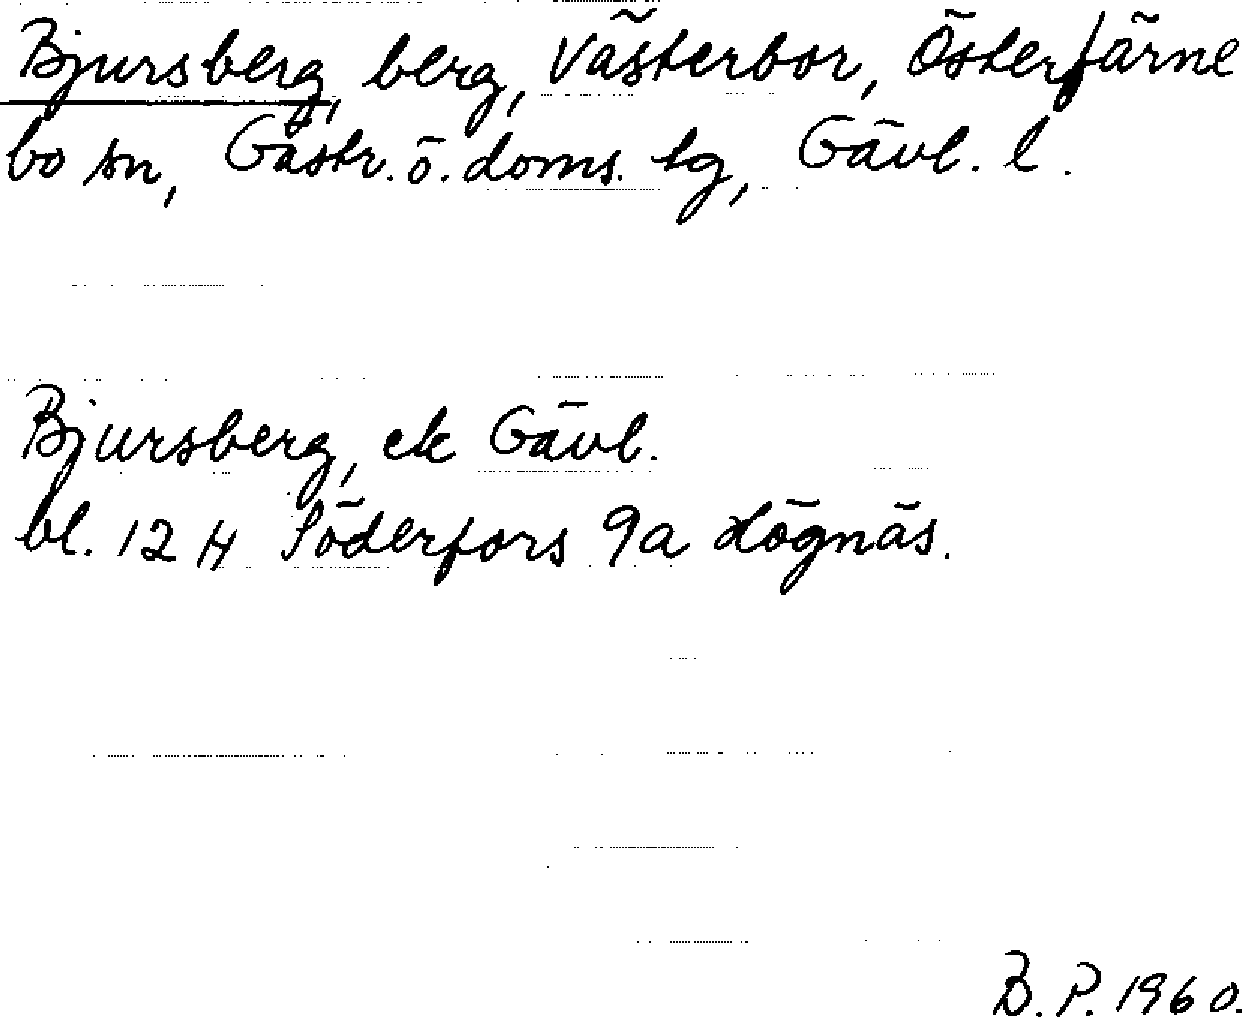 Bjursberg, berg, Västerbor, Österfärne
bo sn, Gästr. ö. doms. tg, Gävl. l.
Bjursberg, ek Gävl.
bl. 12 H Söderfors 9a Högnäs.
B. P. 1960.